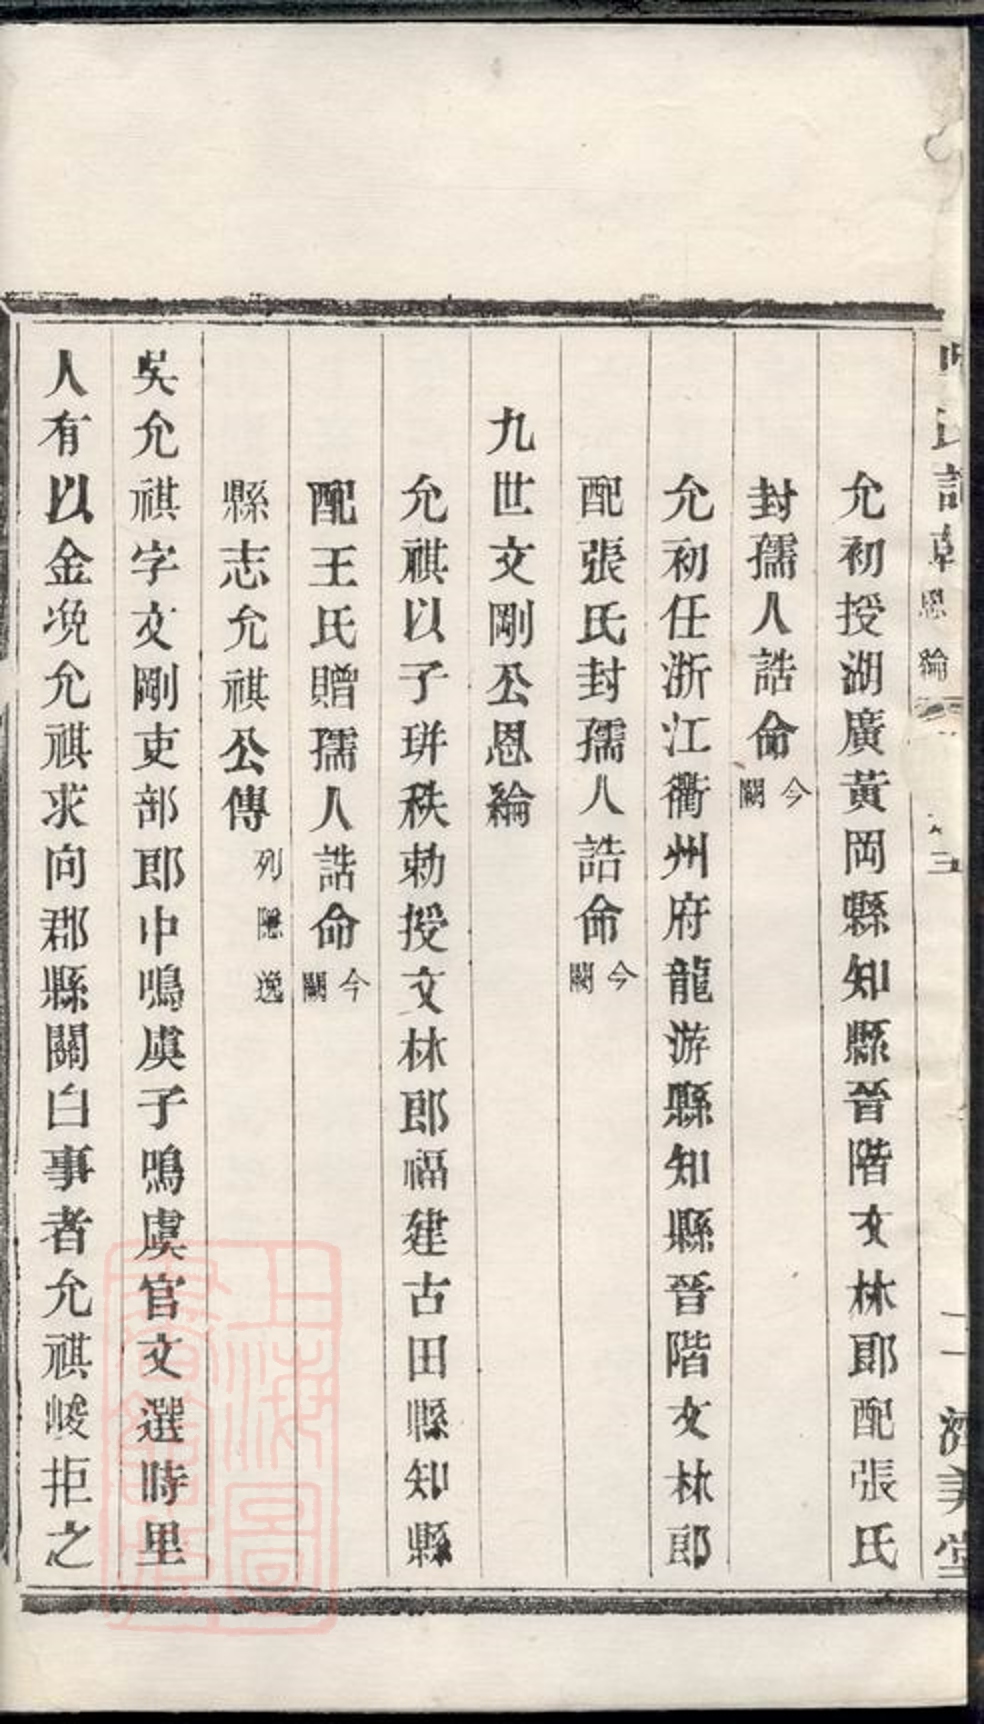 允初授湖廣黃岡縣知縣晉階文林郎配張氏
封孺人誥命今闕
允初任浙江衢州府龍游縣知縣晉階文林郎
配張氏封孺人誥命今闕
九世文剛公恩綸
允祺以子珄秩勅授文林郎福建古田縣知縣
配王氏贈孺人誥命今闕
縣志允祺公傳列隱逸
吳允祺字文剛吏部郎中鳴虞子鳴虞官文選時里
人有以金浼允祺求向郡縣關白事者允祺峻拒之
氏 恩綸
濟美堂
上海圖書館藏